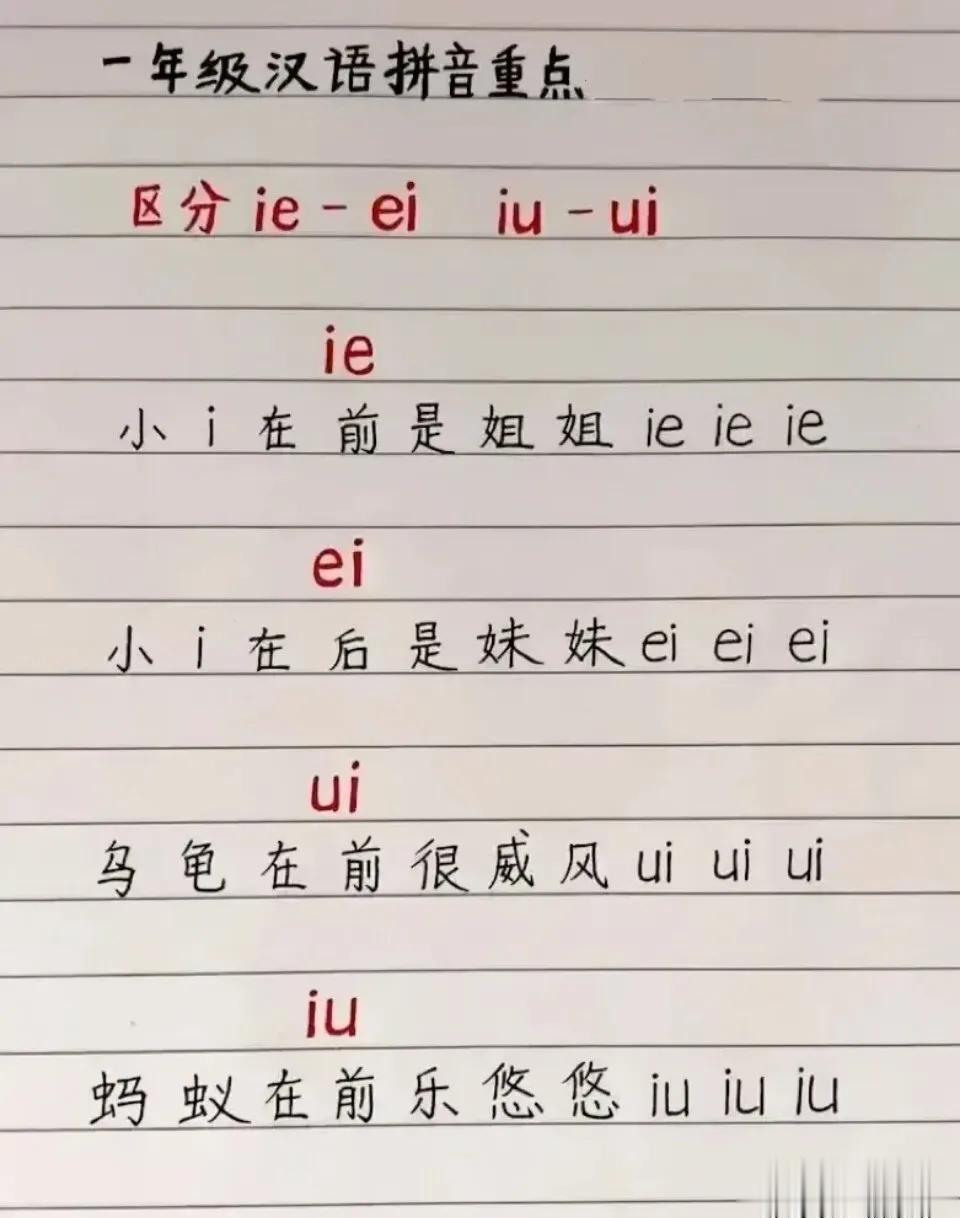 一年级汉语拼音重点
区分 ie - ei iu - ui
ie
小 i 在 前 是 姐 姐 ie ie ie
ei
小 i 在 后 是 妹 妹 ei ei ei
ui
乌 龟 在 前 很 威 风 ui ui ui
iu
蚂 蚁 在 前 乐 悠 悠 iu iu iu